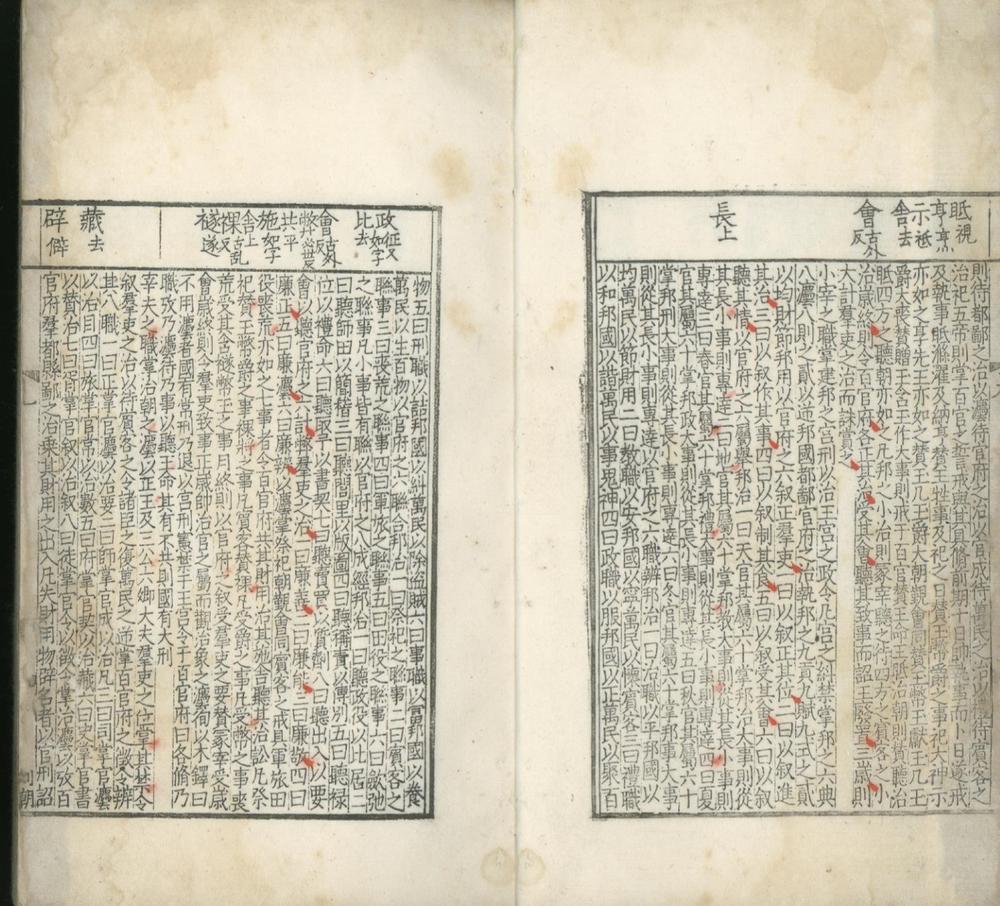 眡視
亨烹
示祗
舎去
會古外反
長上
則待都鄙之治以灋待官府之治以官成待萬民之治以禮待賓客之
治祀五帝則掌百官之誓戒與其具脩前期十日帥執事而卜日遂戒
及執事眡滌濯及納亨贊王牲事及祀之日贊玉幣爵之事祀大神示
亦如之享先王亦如之贊玉几玉爵大朝覲會同贊玉幣玉獻玉几玉
爵大喪贊贈玉含玉作大事則戒于百官贊王命王眡治朝則贊聽治
眡四方之聽朝亦如之凡邦之小治則冢宰聽之待四方之賓客之小
治歲終則令百官府各正其治受其會聽其致事而詔王廢置三歲則
大計羣吏之治而誅賞之
小宰之職掌建邦之宮刑以治王宮之政令凡宮之糾禁掌邦之六典
八灋八則之貳以逆邦國都鄙官府之治執邦之九貢九賦九式之貳
以均財節邦用以官府之六叙正羣吏一曰以叙正其位二曰以叙進
其治三曰以叙作其事四曰以叙制其食五曰以叙受其會六曰以叙
聽其情以官府之六屬舉邦治一曰天官其屬六十掌邦治大事則從
其長小事則專達二曰地官其屬六十掌邦敎大事則從其長小事則
專達三曰春官其屬六十掌邦禮大事則從其長小事則專達四曰夏
官其屬六十掌邦政大事則從其長小事則專達五曰秋官其屬六十
掌邦刑大事則從其長小事則專達六曰冬官其屬六十掌邦事大事
則從其長小事則專達以官府之六職辨邦治一曰治職以平邦國以
均萬民以節財用二曰敎職以安邦國以寧萬民以懷賓客三曰禮職
以和邦國以諧萬民以事鬼神四曰政職以服邦國以正萬民以聚百
政征又如字
比去
會古外反
共平
施如字
舎上
祼古乱反
禭遂
藏去
辟僻
物五曰刑職以詰邦國以糾萬民以除盜賊六曰事職以富邦國以養
萬民以生百物以官府之六聯合邦治一曰祭祀之聯事二曰賓客之
之聯事三曰喪荒之聯事四曰軍旅之聯事五曰田役之聯事六曰斂弛
之聯事凡小事皆有聯以官府之八成經邦治一曰聽政役以比居二
曰聽師田以簡稽三曰聽閭里以版圖四曰聽稱責以傅别五曰聽禄
位以禮命六曰聽取予以書契七曰聽賣買以質劑八曰聽出入以要
會以聽官府之六計弊羣吏之治一曰廉善二曰廉能三曰廉敬四曰
廉正五曰廉灋六曰廉辨以灋掌祭祀朝覲會同賓客之戒具軍旅田
役喪荒亦如之七事者令百官府共其財用治其施舍聽其治訟凡祭
祀贊玉幣爵之事祼將之事凡賓客贊祼凡受爵之事凡受幣之事喪
荒受其含禭幣玉之事月終則以官府之叙受羣吏之要贊冢宰受歲
會歲終則令羣吏致事正歲帥治官之屬而觀治象之灋徇以木鐸曰
不用灋者國有常刑乃退以宮刑憲禁于王宮令于百官府曰各脩乃
職攷乃灋待乃事以聽王命其有不共則國有大刑
宰夫之職掌治朝之灋以正王及三公六卿大夫羣吏之位掌其禁令
叙羣吏之治以待賓客之令諸臣之復萬民之逆掌百官府之徵令辨
其八職一曰正掌官灋以治要二曰師掌官成以治凡三曰司掌官灋
以治目四曰旅掌官常以治數五曰府掌官契以治藏六曰史掌官書
以贊治七曰胥掌官叙以治叙八曰徒掌官令以徵令掌治灋以攷百
官府羣都縣鄙之治乘其財用之出入凡失財用物辟名者以官刑詔